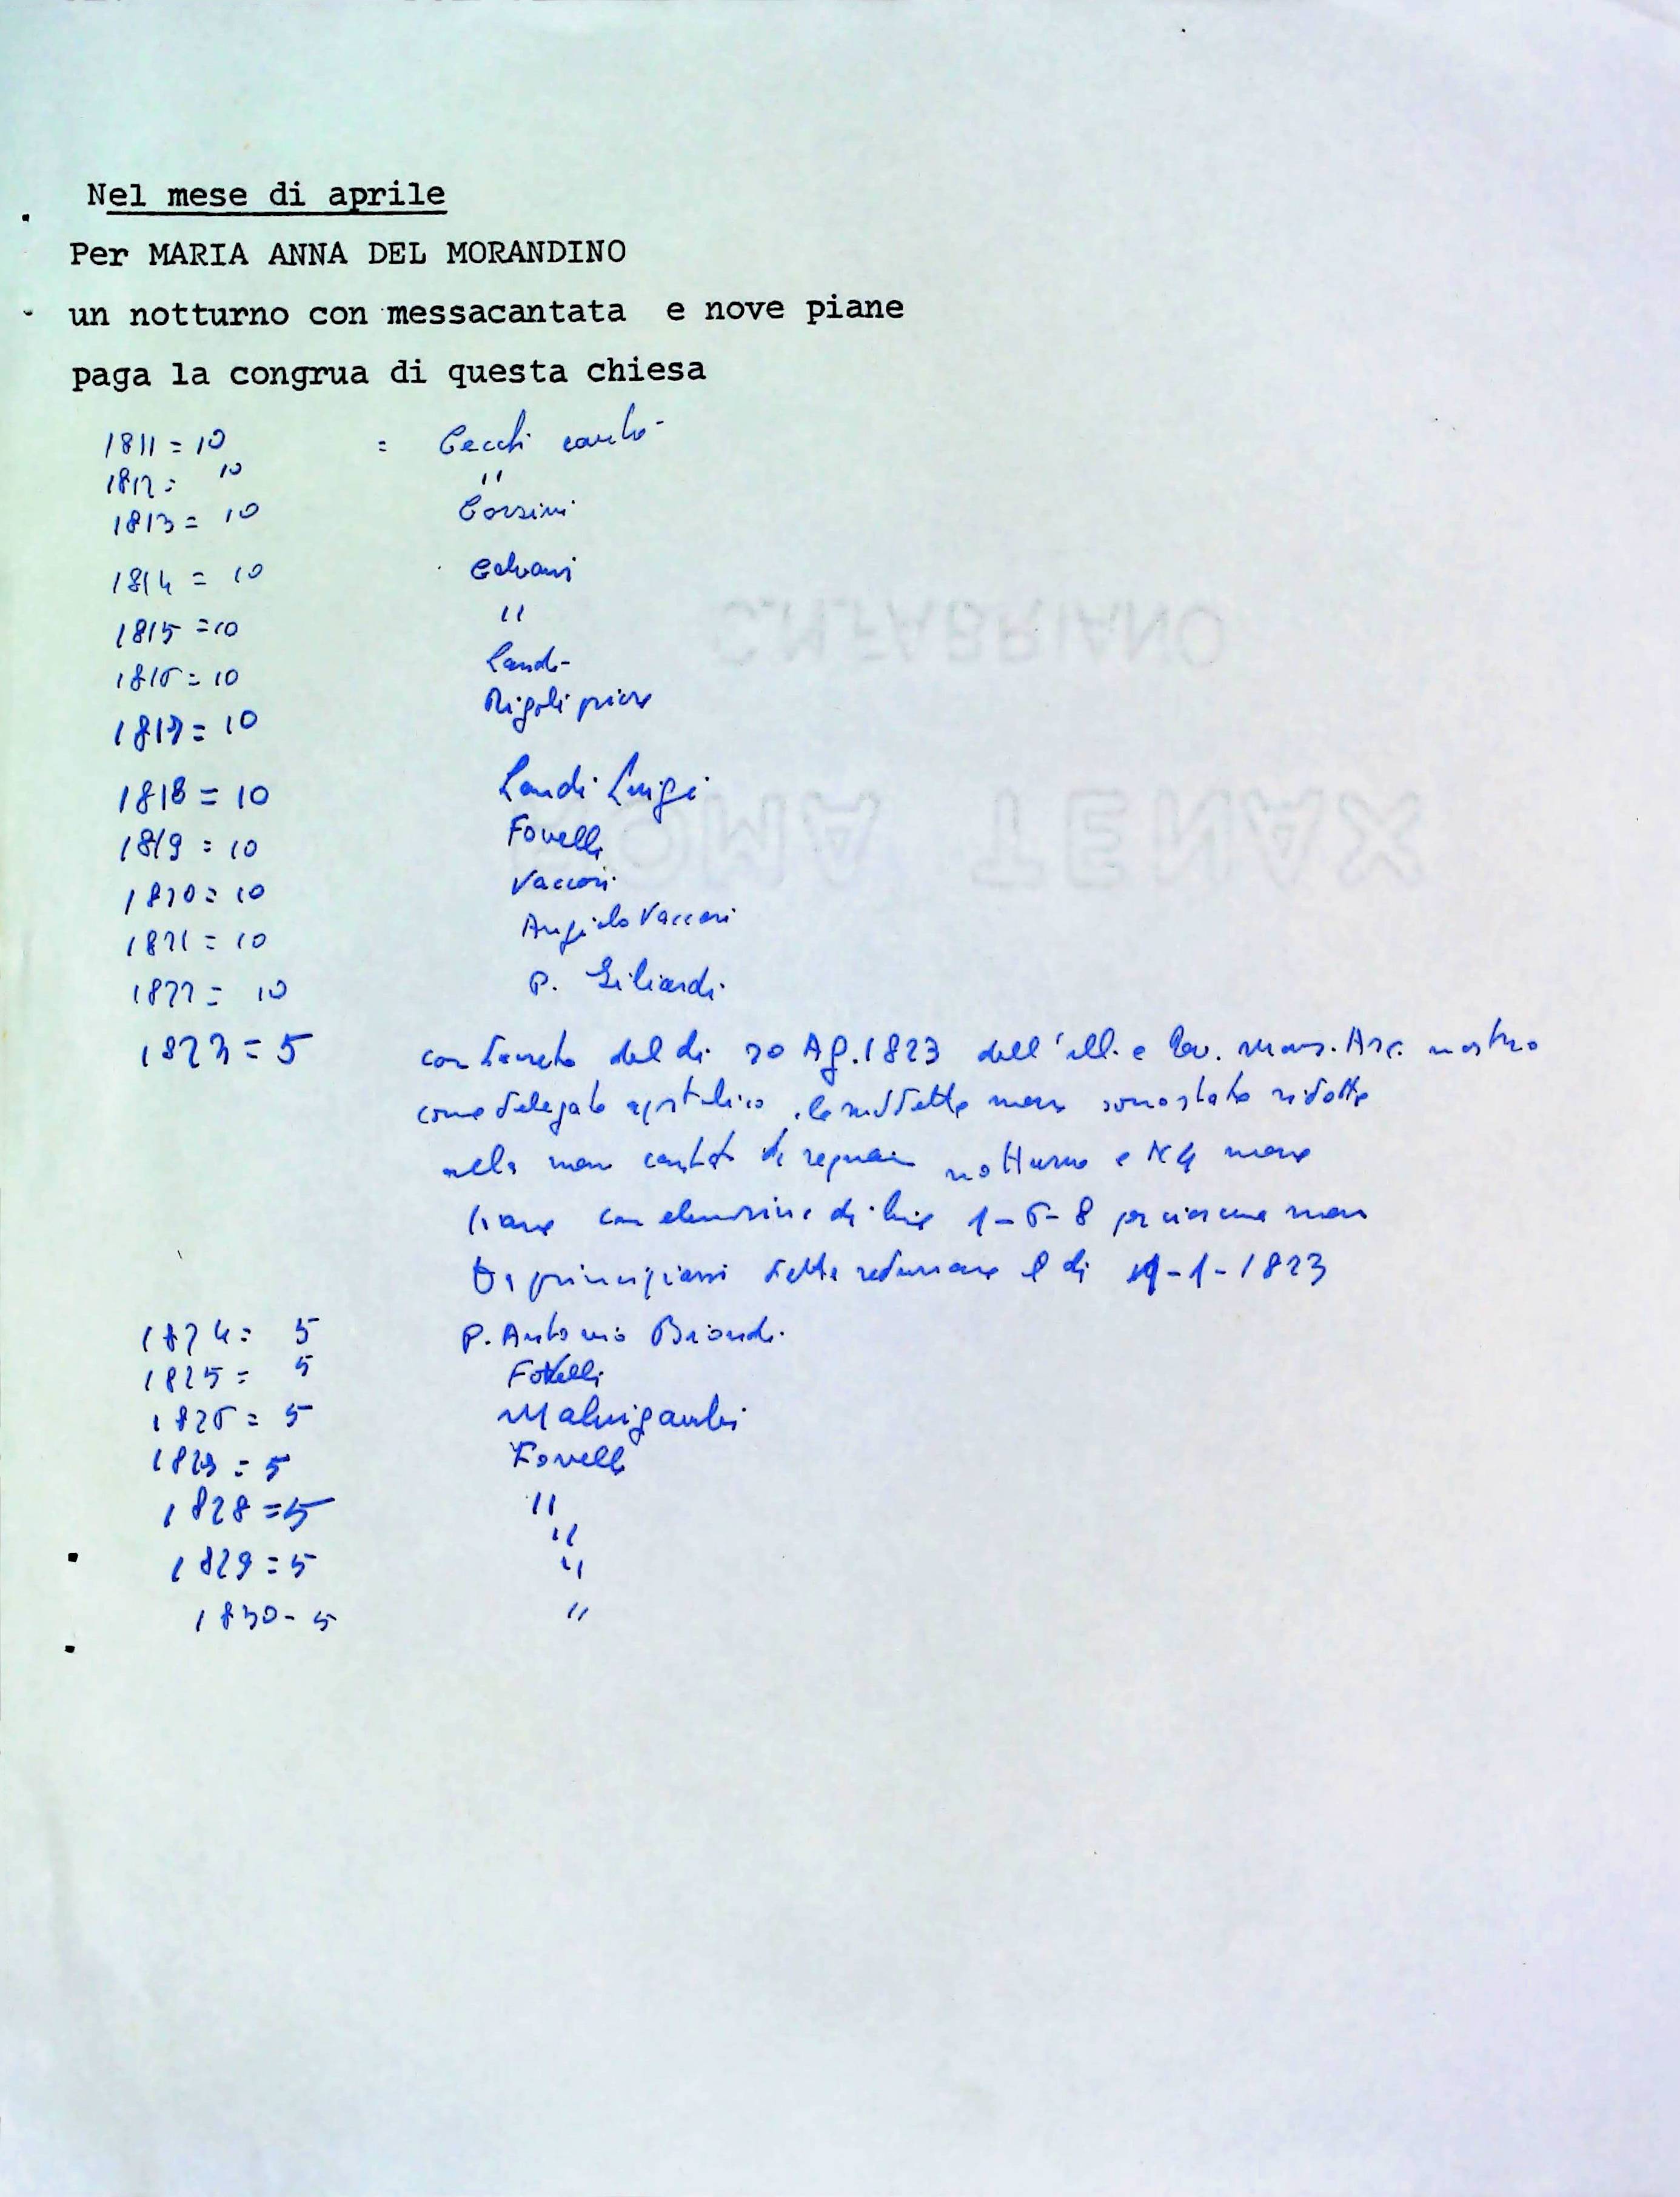 Nel mese di aprile
Per MARIA ANNA DEL MORANDINO
un notturno con messacantata e nove piane
paga la congrua di questa chiesa
1811 = 10 = Cecchi
1812 = 10 "
1813 = 10 Corsini
1814 = 10 Galvani
1815 = 10 "
1816 = 10 Landi
1817 = 10 Rigoli priore
1818 = 10 Landi Luigi
1819 = 10 Fovelli
1820 = 10 Vaccari
1821 = 10 Angiolo Vaccari
1822 = 10 P. Giliardi
1823 = 5 con decreto del dì 20 Ag. 1823 dell'ill. e Rev. mons. Arc. nostro
come delegato apostolico, le suddette messe sono state ridotte
alla messa cantata di requiem notturno e N 4 messe
piane con elemosina di lire 1-6-8 per ciascuna messa
Da principiarsi detta reduzione il dì 1-1-1823
1824 = 5 P. Antonio Biondi
1825 = 5 Fovelli
1826 = 5 Malnigambi
1827 = 5 Fovelli
1828 = 5 "
"
1829 = 5 "
1830 - 5 "
C.M.FABRIANO
ROMA TENAX